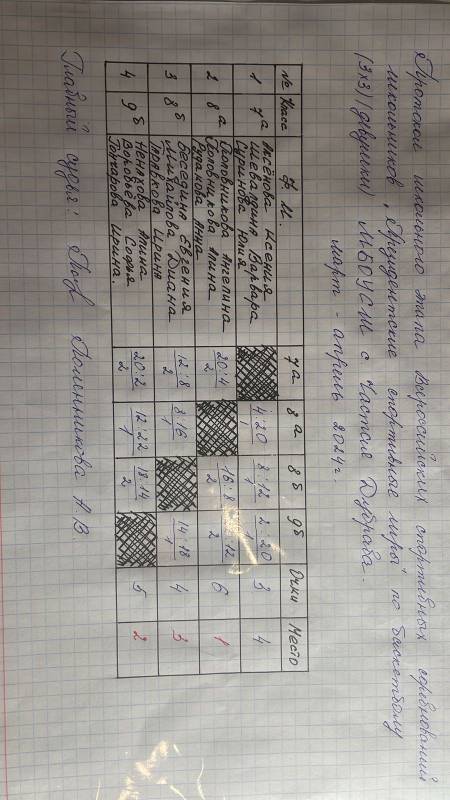 Протокол школьного этапа Всероссийских спортивных соревнований
школьников „Президентские спортивные игры" по баскетболу
(3х3) (девушки) МБОУСШ с Частая Дубрава.
март - апрель 2024г.
№ Класс Ф. И. 7а 8а 8б 9б Очки Место
1 7а Аксёнова Ксения
Шевалдина Варвара 4:20 8:12 2:20 3 4
Сурнина Юлия 1 1 1
2 8а Половникова Ангелина
Половникова Алина 20:4 16:8 :12 6 1
Рудакова Анна 2 2 2
3 8б Беседина Евгения
Михайлова Диана 12:8 8:16 14:18 4 3
Ирина 2 1 1
4 9б Алина
Воробьёва Софья 20:2 12:22 18:14 5 2
Гончарова Ирина. 2 1 2
Главный судья: А.В